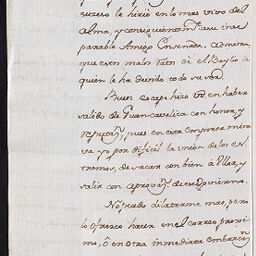 suceso le hirió en lo mas vivo del
alma, y consiguientem.te a su inse
parable Amigo Ensenada. Ademas
que es en malos tratos de el Baylio a
quien le ha devido todo su ser
Buen escape hizo Vm en haber
salido de Guancavelica con honor, y
reputac.n, pues en esta empresa mira
va yo por dificil la union de los ex
tremos, de sacar con bien a Ulloa, y
salir con aprovac.n de
No puedo dilatarme mas, pero
lo ofresco hacer en el correo proxi
mo, ó en otra inmediata embarcac.n